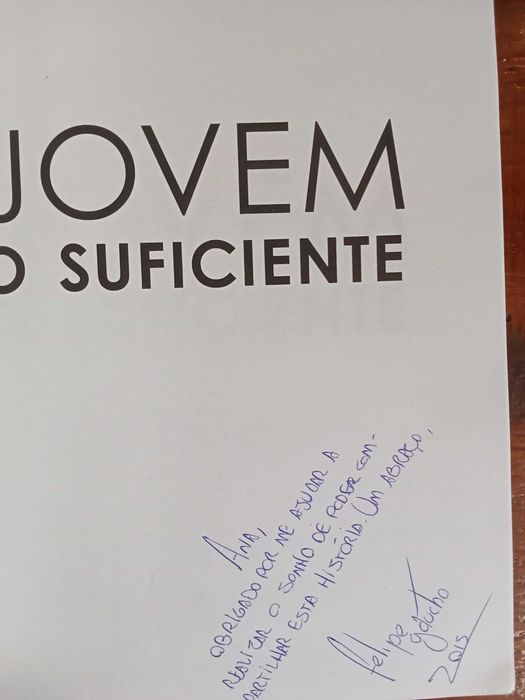 JOVEM
O SUFICIENTE
ANA,
OBRIGADO POR ME AJUDAR A
REALIZAR O SONHO DE PODER COM-
PARTILHAR ESTA HISTÓRIA. UM ABRAÇO,
Felipe
Gaúcho
2015